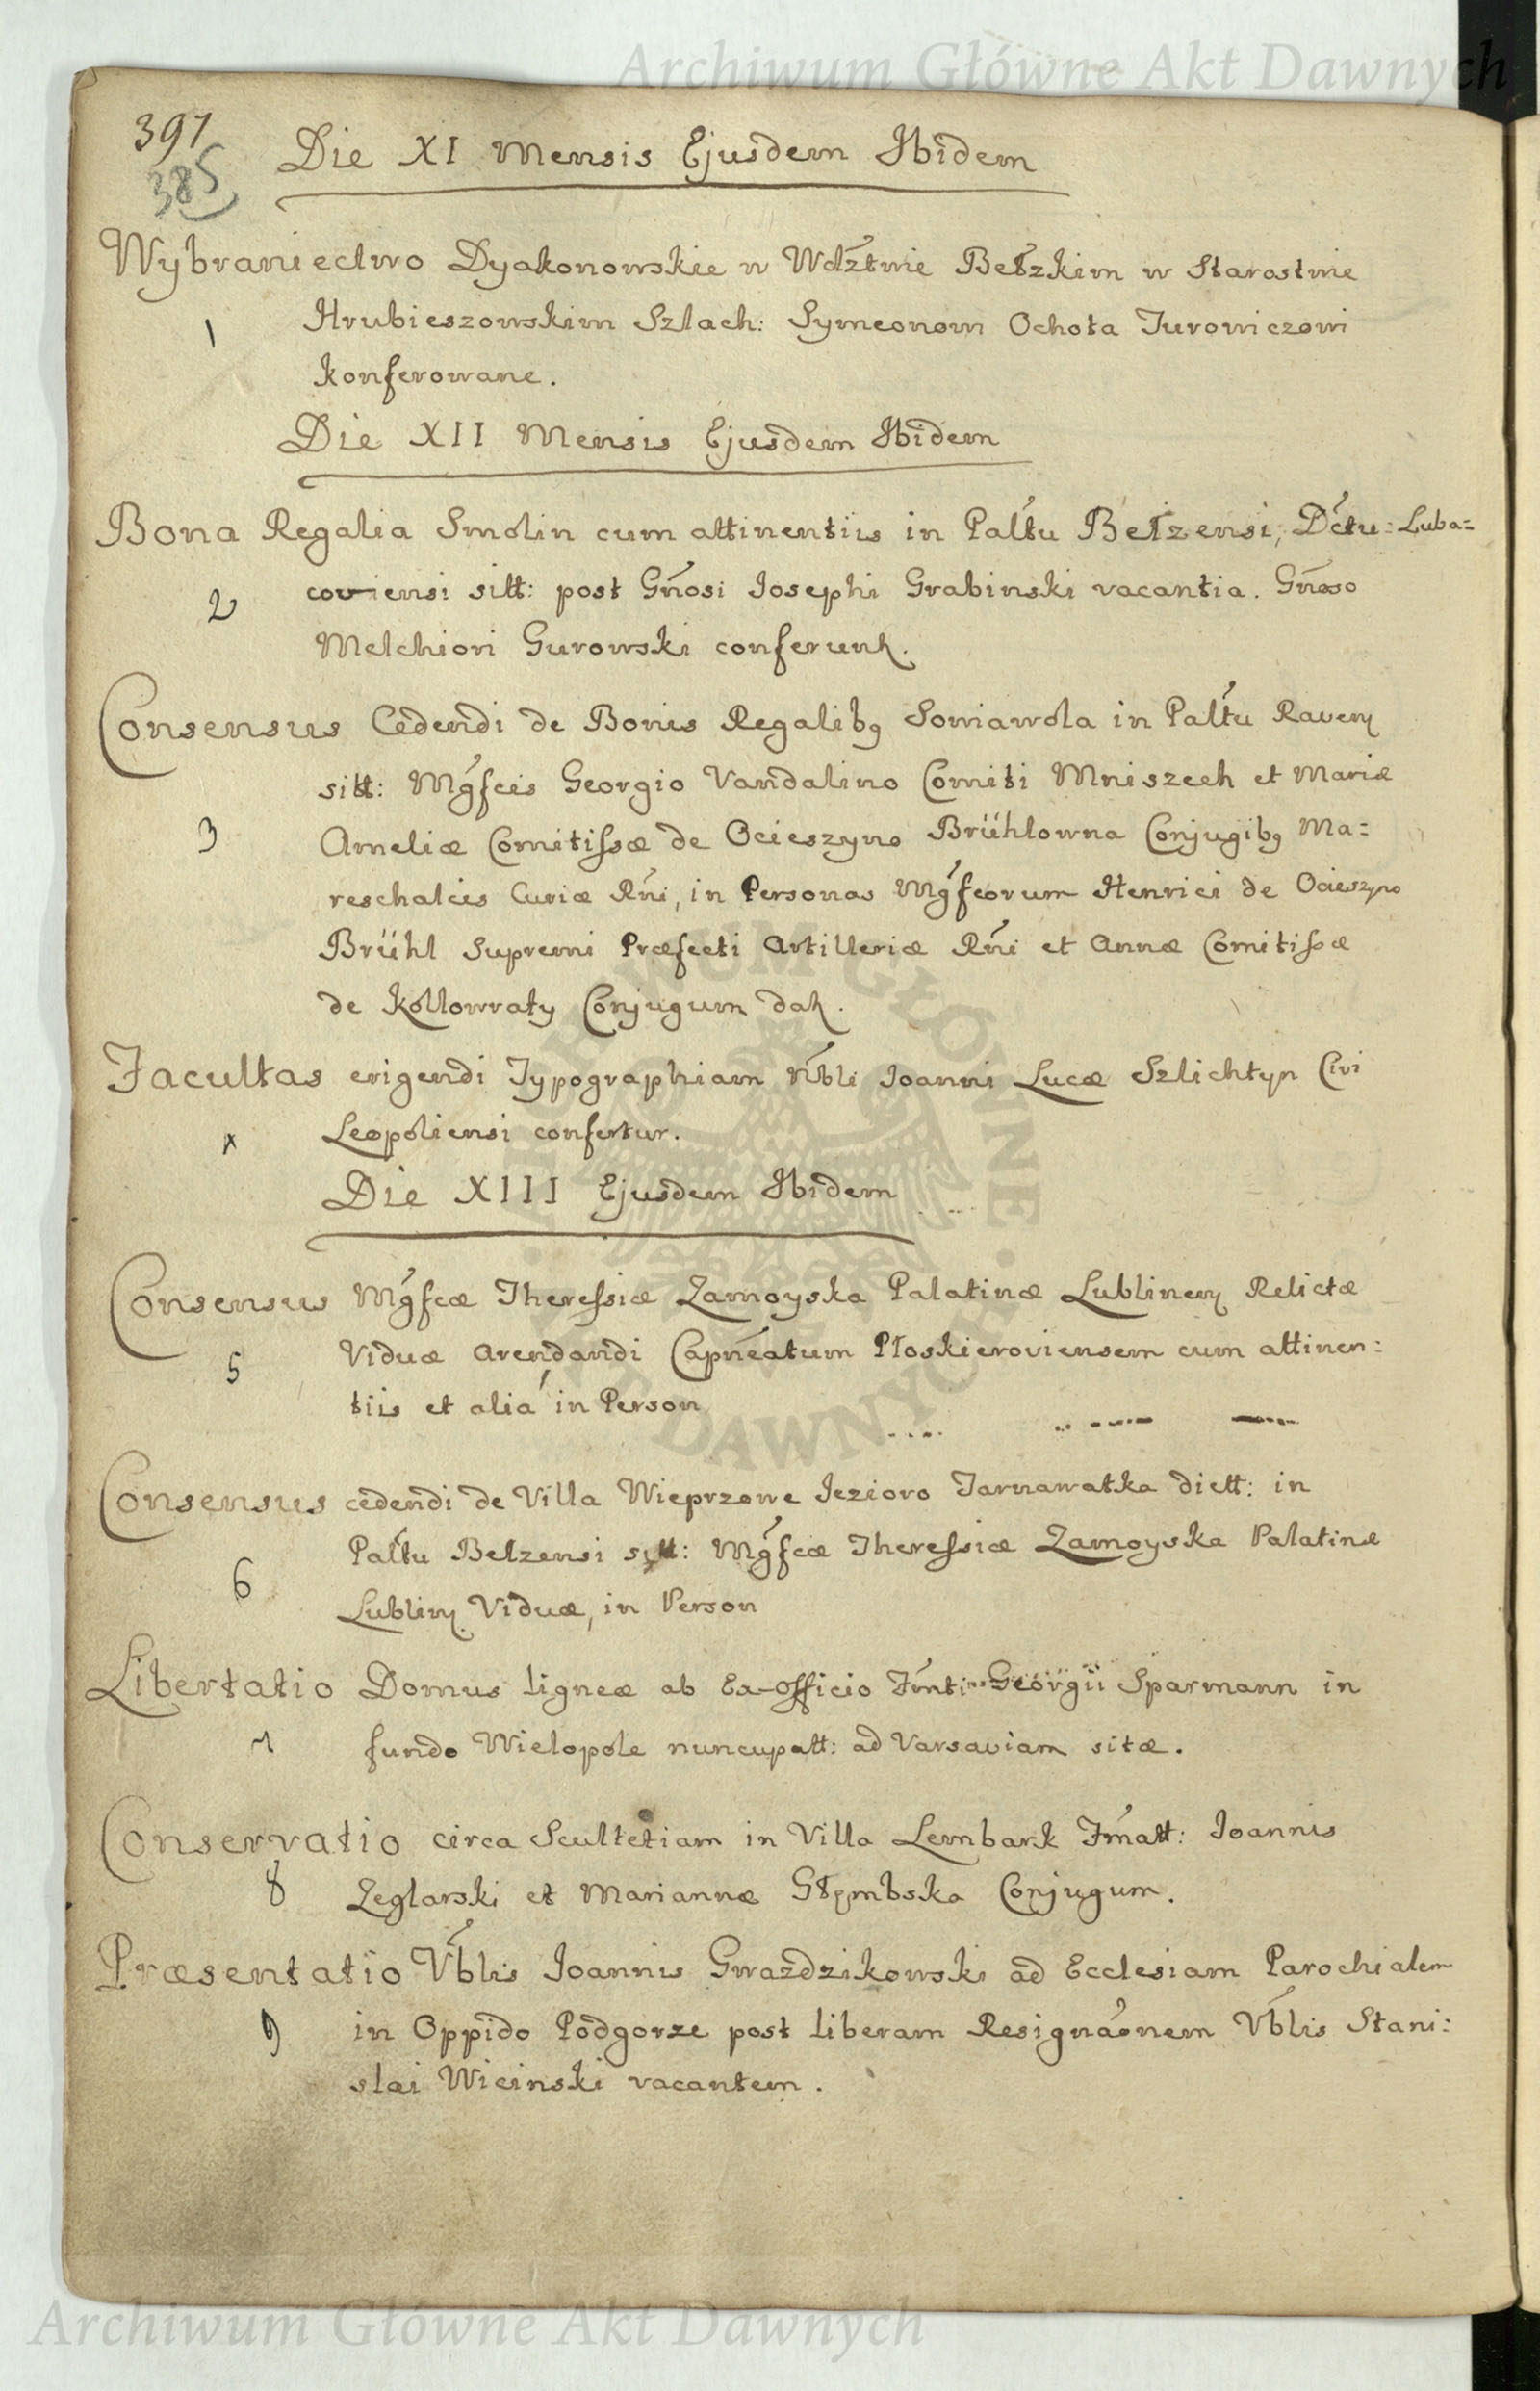 Archiwum Główne Akt Dawnych
391
385
Die XI Mensis Ejusdem Ibidem
Wybraniectwo Dyakonowskie w Wdztwie Bełzkim w Starostwie
1
Hrubieszowskim Szlach: Symeonowi Ochota Turowiczowi
konferowane.
Die XII Mensis Ejusdem Ibidem
Bona Regalia Smolin cum attinentiis in Paltu Bełzensi, Dctu: Luba=
2
coviensi sitt: post Gnosi Josephi Grabinski vacantia. Gnoso
Melchiori Gurowski conferunt.
Consensus Cedendi de Bonis Regalibq Soniawola in Paltu Raven
sitt: Mgfcis Georgio Vandalino Comiti Mniszech et Mariæ
3
Ameliæ Comitissæ de Ocieszyno Brühlowna Conjugibq Ma=
reschalcis Curiæ Rni, in Personas Mgfcorum Henrici de Ocieszyno
Brühl Supremi Præfecti Artilleriæ Rni et Annæ Comitissæ
de Kollowraty Conjugum dat.
Facultas erigendi Typographiam Nbli Joanni Lucæ Szlichtyn Civi
Leopoliensi confertur.
Die XIII Ejusdem Ibidem
Consensus Mgfcæ Theressiæ Zamoyska Palatinæ Lublinen Relictæ
5
Viduæ Arendandi Capneatum Płoskieroviensem cum attinen:
tiis et alia in Person
Consensus cedendi de Villa Wieprzowe Jezioro Tarnawatka dictt: in
Paltu Belzensi sitt: Mgfcæ Theressiæ Zamoyska Palatinæ
6
Lublin Viduæ, in Person
Libertatio Domus ligneæ ab Ex-officio Fmti Georgii Sparmann in
7
fundo Wielopole nuncupatt: ad Varsaviam sitæ.
Conservatio circa Scultetiam in Villa Lembark Fmatt: Joannis
8
Zeglarski et Mariannæ Głembska Conjugum.
Præsentatio Vblis Joannis Gwazdzikowski ad Ecclesiam Parochialem
9
in Oppido Podgorze post liberam Resignaonem Vblis Stani:
slai Wicinski vacantem.
Archiwum Główne Akt Dawnych